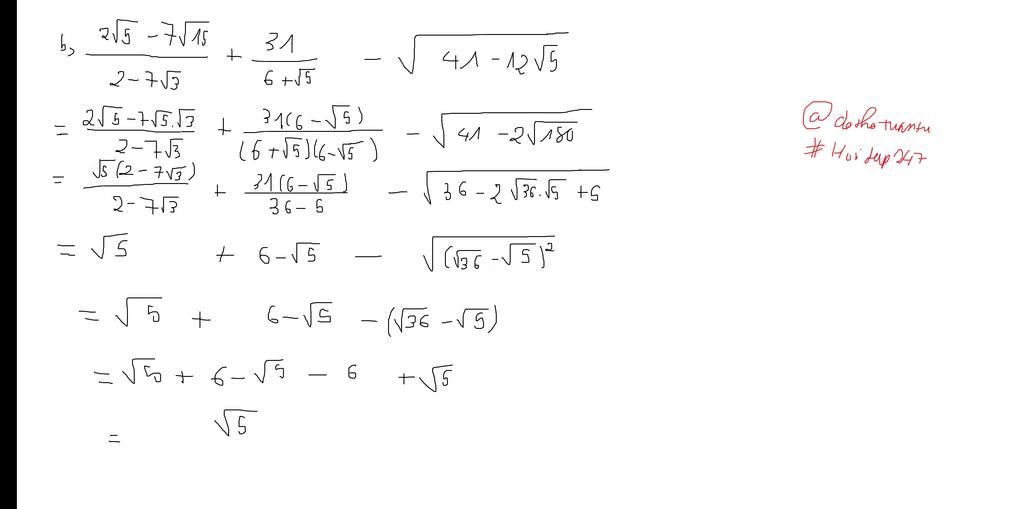 b, (2√5 − 7√15)/(2 − 7√3) + 31/(6 + √5) − √(41 − 12√5)
= (2√5 − 7√5.√3)/(2 − 7√3) + 31(6 − √5)/((6 + √5)(6 − √5)) − √(41 − 2√180)
= √5(2 − 7√3)/(2 − 7√3) + 31(6 − √5)/(36 − 5) − √(36 − 2√36.√5 + 5)
= √5 + 6 − √5 − √((√36 − √5)²)
= √5 + 6 − √5 − (√36 − √5)
= √5 + 6 − √5 − 6 + √5
= √5